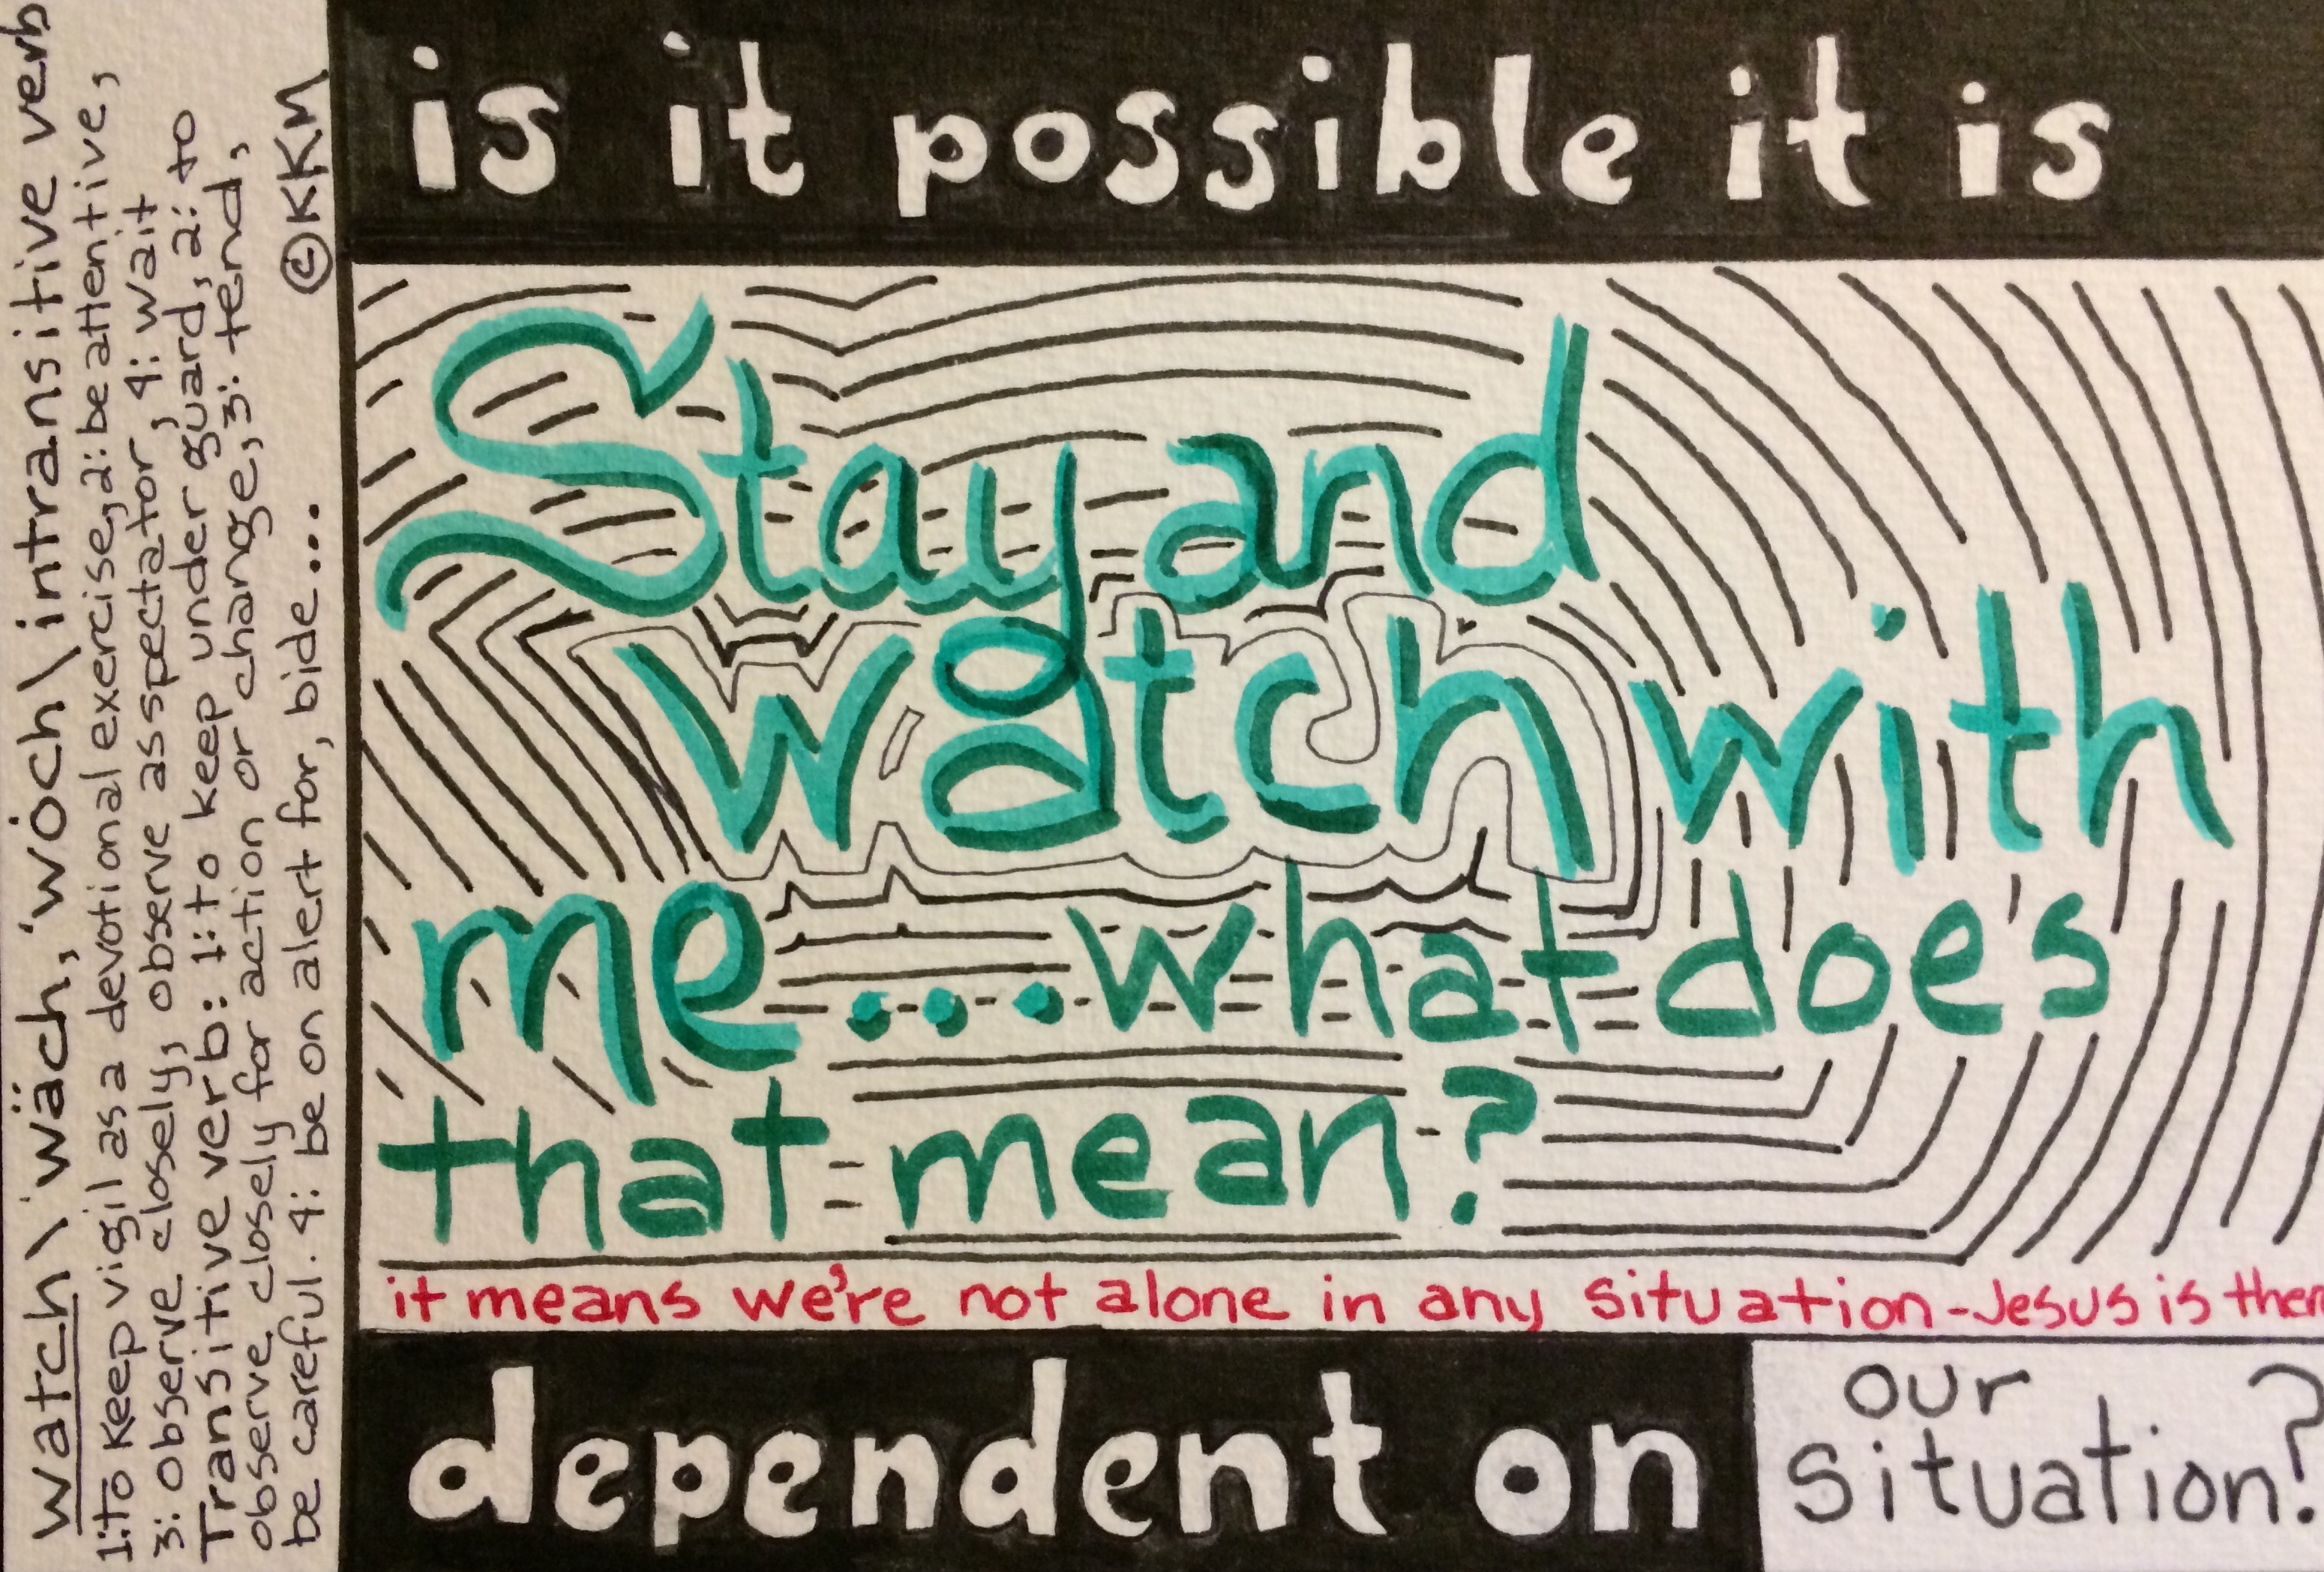 is it possible it is
Stay and
watch with
me...what does
that mean?
it means we're not alone in any situation-Jesus is ther
dependent on
our
situation?
watch\'wäch,'wȯch\intransitive verb
1:to keep vigil as a devotional exercise,2:be attentive,
3:observe closely, observe as spectator, 4: wait
Transitive verb: 1:to keep under guard, 2: to
observe closely for action or change, 3: tend,
be careful. 4: be on alert for, bide...
©KKM